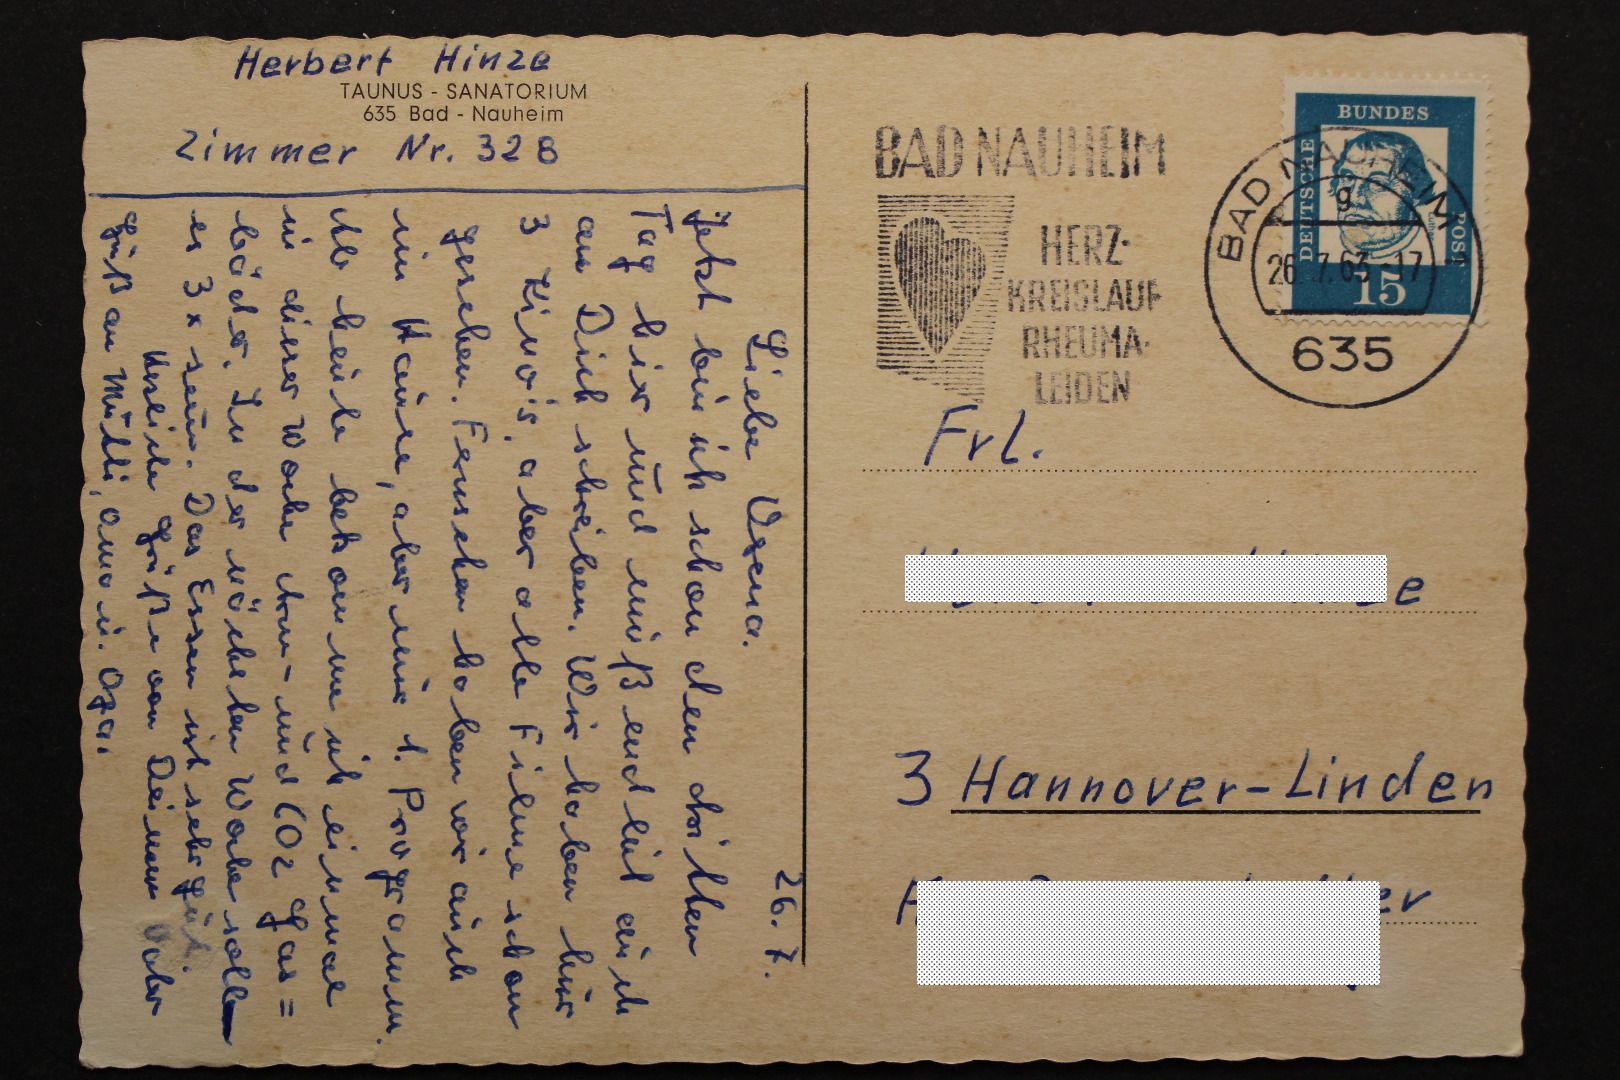 Herbert Hinze
TAUNUS - SANATORIUM
635 Bad - Nauheim
Zimmer Nr. 328
26. 7.
Liebe Verena.
Jetzt bin ich schon den dritten
Tag hier und muß endlich auch
an Dich schreiben. Wir haben hier
3 Kino's, aber alle Filme schon
gesehen. Fernsehen haben wir auch
im Hause, aber nur 1. Programm.
Ab heute bekomme ich einmal
in dieser Woche und CO2 Gas=
bäder. In der nächsten Woche sollen
es 3x sein. Das Essen ist sehr gut.
Herzliche Grüße von Deinem Vater
Gruß an Mutti, Oma u. Opa.
BAD NAUHEIM
HERZ-
KREISLAUF
RHEUMA-
LEIDEN
DEUTSCHE BUNDES POST
Luther
15
BAD NAUHEIM 1
g
26.7.63-17
635
Frl.
3 Hannover-Linden